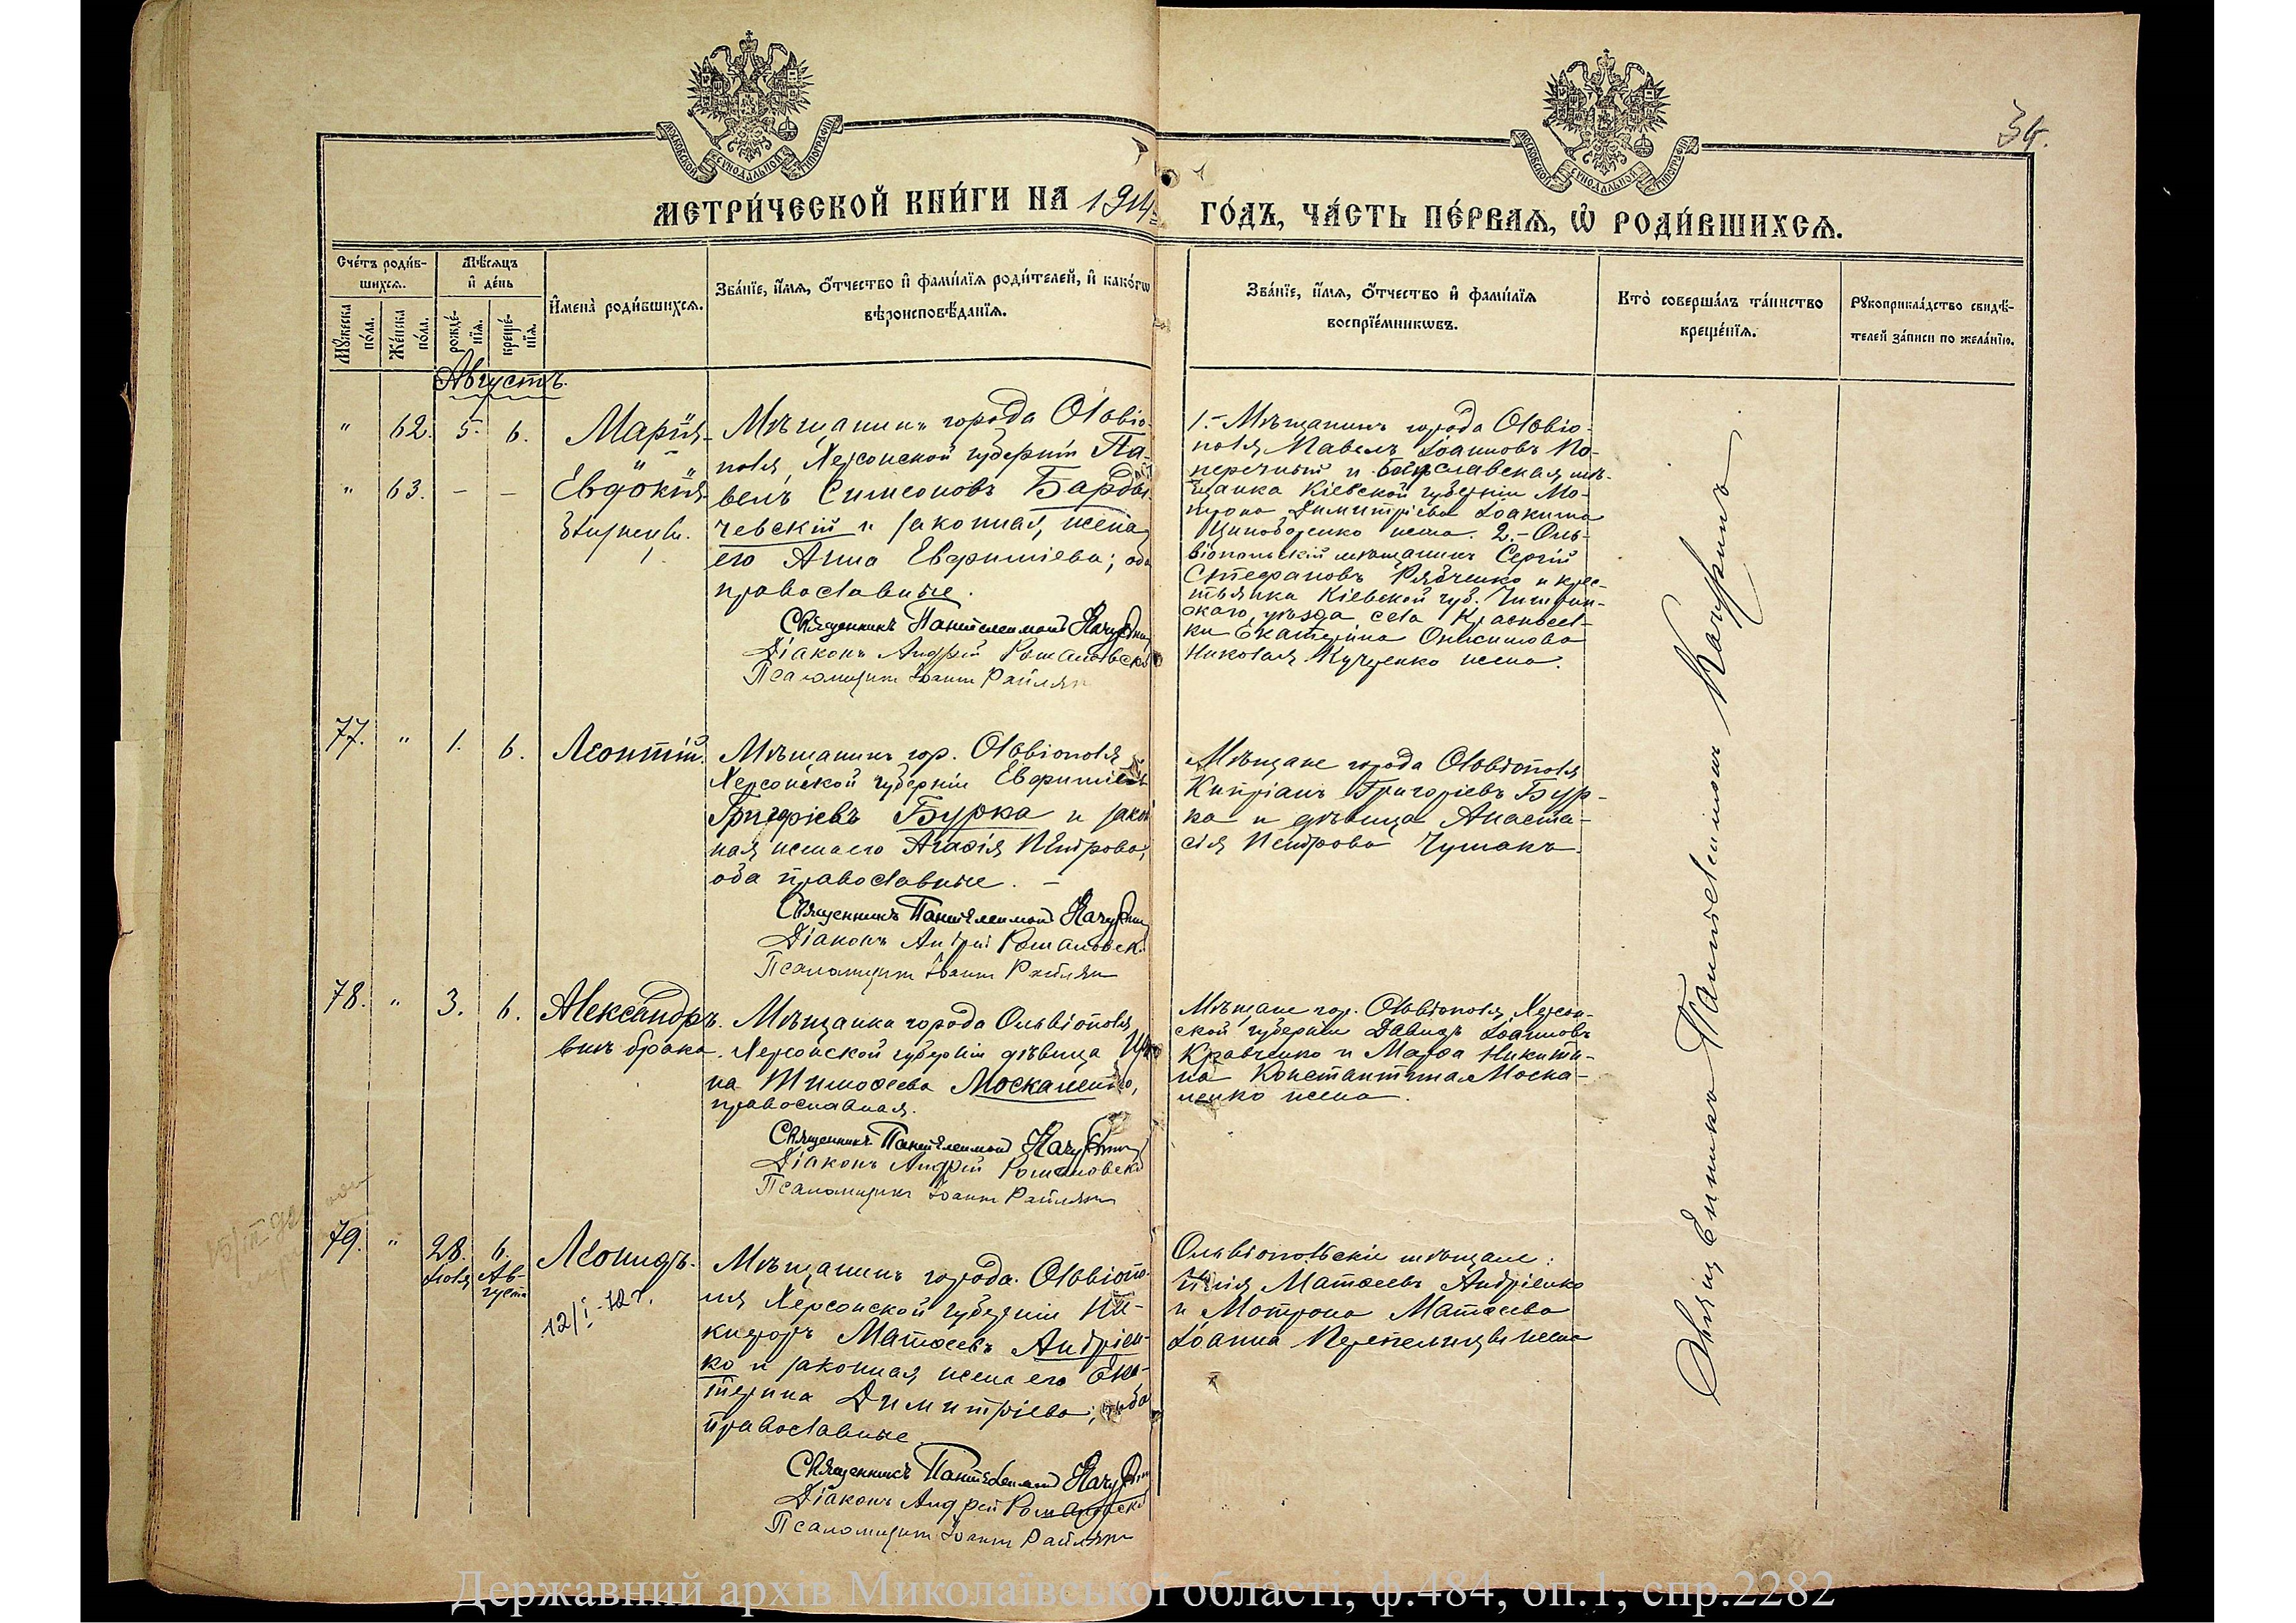 34.
МОСКОВСКОЙ СѴНОДАЛЬНОЙ ТИПОГРАФІИ
МОСКОВСКОЙ СѴНОДАЛЬНОЙ ТИПОГРАФІИ
МЕТРИ́ЧЕСКОЙ КНИ́ГИ НА 1914 ГО́ДЪ, ЧА́СТЬ ПЕ́РВАЯ, Ѡ РОДИ́ВШИХСЯ.
Сче́тъ роди́в-
шихся.
Мѣ́сяцъ
и де́нь
Му́жеска по́ла.
Же́нска по́ла.
рожде́-нія.
креще́-нія.
И҆мена̀ роди́вшихся.
Зва́нїе, и҆́мя, о҆́тчество и҆ фами́лїя роди́телей, и҆ како́гѡ
вѣроисповѣ́данїя.
Зва́нїе, и҆́мя, о҆́тчество и҆ фами́лїя
воспрїе́мникѡвъ.
Кто̀ соверша́лъ та́инство
креще́нїя.
Рꙋкоприкла́дство свидѣ́-
телей за́писи по жела́нїю.
Августъ.
" 62. 5. 6. Марія
" 63. - - Евдокія
близнецы.
Мѣщанинъ города Ольвіо-
поля, Херсонской губерніи Па-
велъ Симеоновъ Барды-
чевскій и законная жена
его Анна Евфиміева; оба
православные.
Священникъ Пантелеимонъ
Діаконъ Андрей Романовскі
Псаломщикъ Іоаннъ Райлян
1.- Мѣщанинъ города Ольвіо-
поля Павелъ Іоанновъ По-
перечный и Богуславская мѣ-
щанка Кіевской губерніи Мо-
трона Димитріева Іоакима
жена. 2.- Оль-
віопольскій мѣщанинъ Сергій
Стефановъ Рябченко и крес-
тьянка Кіевской губ. Чигирин-
скаго уѣзда села
ки Екатерина Онисимова
Николая Куценко жена.
77. " 1. 6. Леонтій.
Мѣщанинъ гор. Ольвіополя
Херсонской губерніи Евфимій
Григоріевъ Бурка и закон
ная жена его Агафія Петрова;
оба православные. -
Священникъ Пантелеимонъ
Діаконъ Андрей Романовск
Псаломщикъ Іоаннъ Райлян
Мѣщане города Ольвіополя
Кипріанъ Григоріевъ Бур-
ка и дѣвица Анаста-
сія Петрова Чумакъ.
78. " 3. 6. Александръ.
внѣ брака.
Мѣщанка города Ольвіополя
Херсонской губерніи дѣвица Ири
на Тимоѳеева Москаленко,
православная.
Священникъ Пантелеимонъ
Діаконъ Андрей Романовскі
Псаломщикъ Іоаннъ Райлян
Мѣщане гор. Ольвіополя, Херсон-
ской губерніи Давидъ Іоанновъ
Кравченко и Марѳа Никити-
на Константина Моска-
ленко жена.
79. " 28. Іюля 6. Ав-
густа
Леонидъ.
12/I-72г.
Мѣщанинъ города Ольвіопо-
ля Херсонской губерніи Ни-
кифоръ Матѳеевъ Андріен-
ко и законная жена его Ека-
терина Димитріева; оба
православные
Священникъ Пантелеимонъ
Діаконъ Андрей Романовскі
Псаломщикъ Іоаннъ Райлян
Ольвіопольскіе мѣщане:
Илія Матѳеевъ Андріенко
и Мотрона Матѳеева
Іоанна Перепелицы жена
Священникъ Пантелеимонъ
Державний архів Миколаївської області, ф.484, оп.1, спр.2282